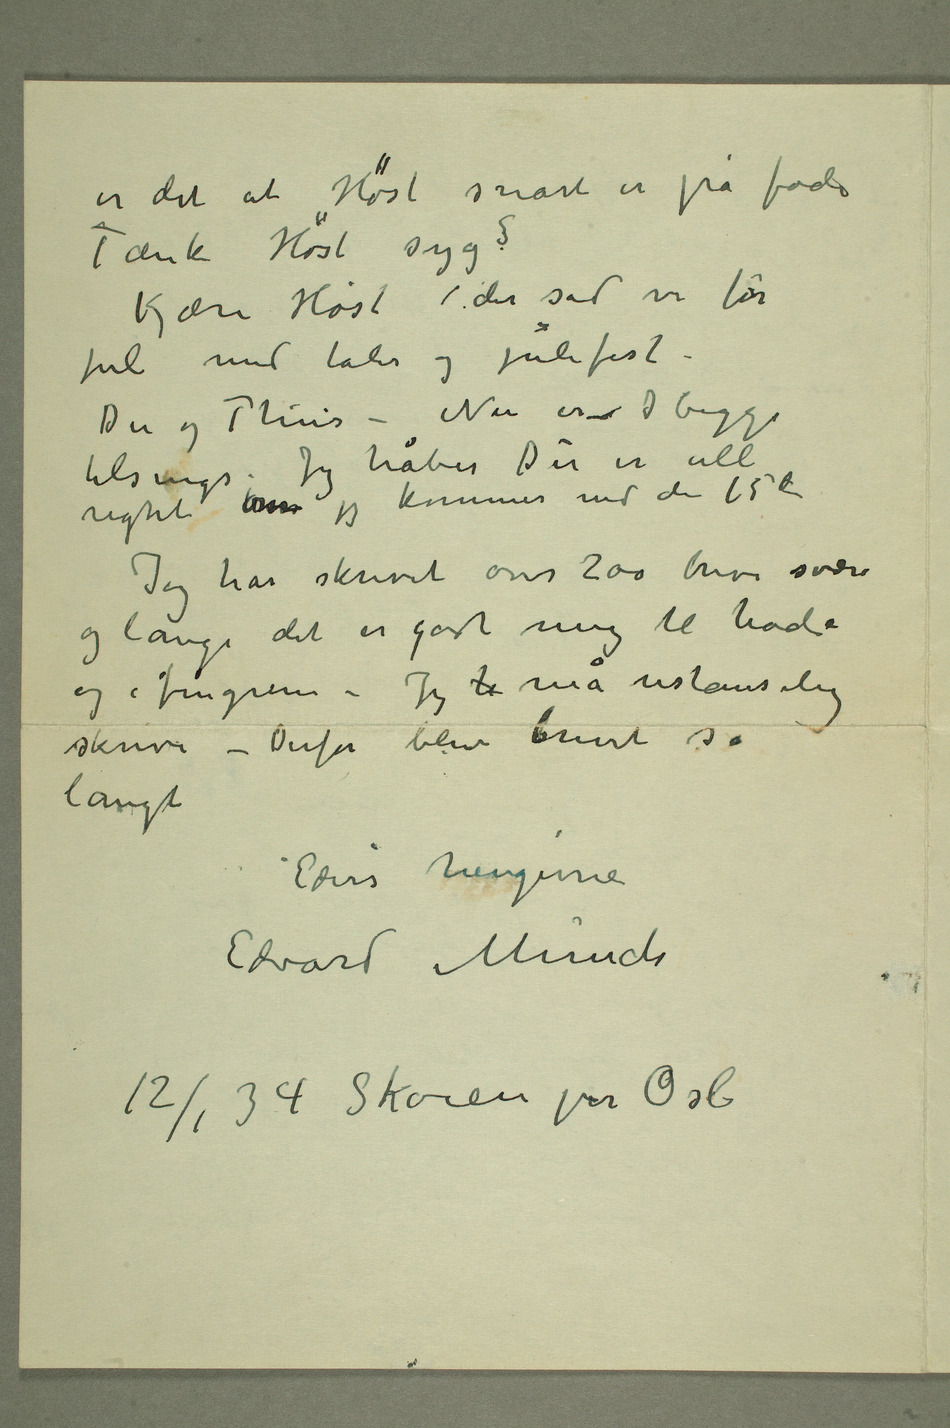 er det at Höst snart er på fode
Tænk Höst syg?
Kjære Höst! der sad vi før
jul med taler og julefest –
Du og Thiis – Nu er I begge
tilsengs. Jeg håber Du er all
right om jeg kommer ned den 15de
Jeg har skrevet over 200 breve svære
og lange det er gåt mig til hode
og i fingrene – Jeg må ustanselig
skrive – Derfor blev brevet så
langt
Eders hengivne
Edvard Munch
12/1 34 Skøien per Oslo